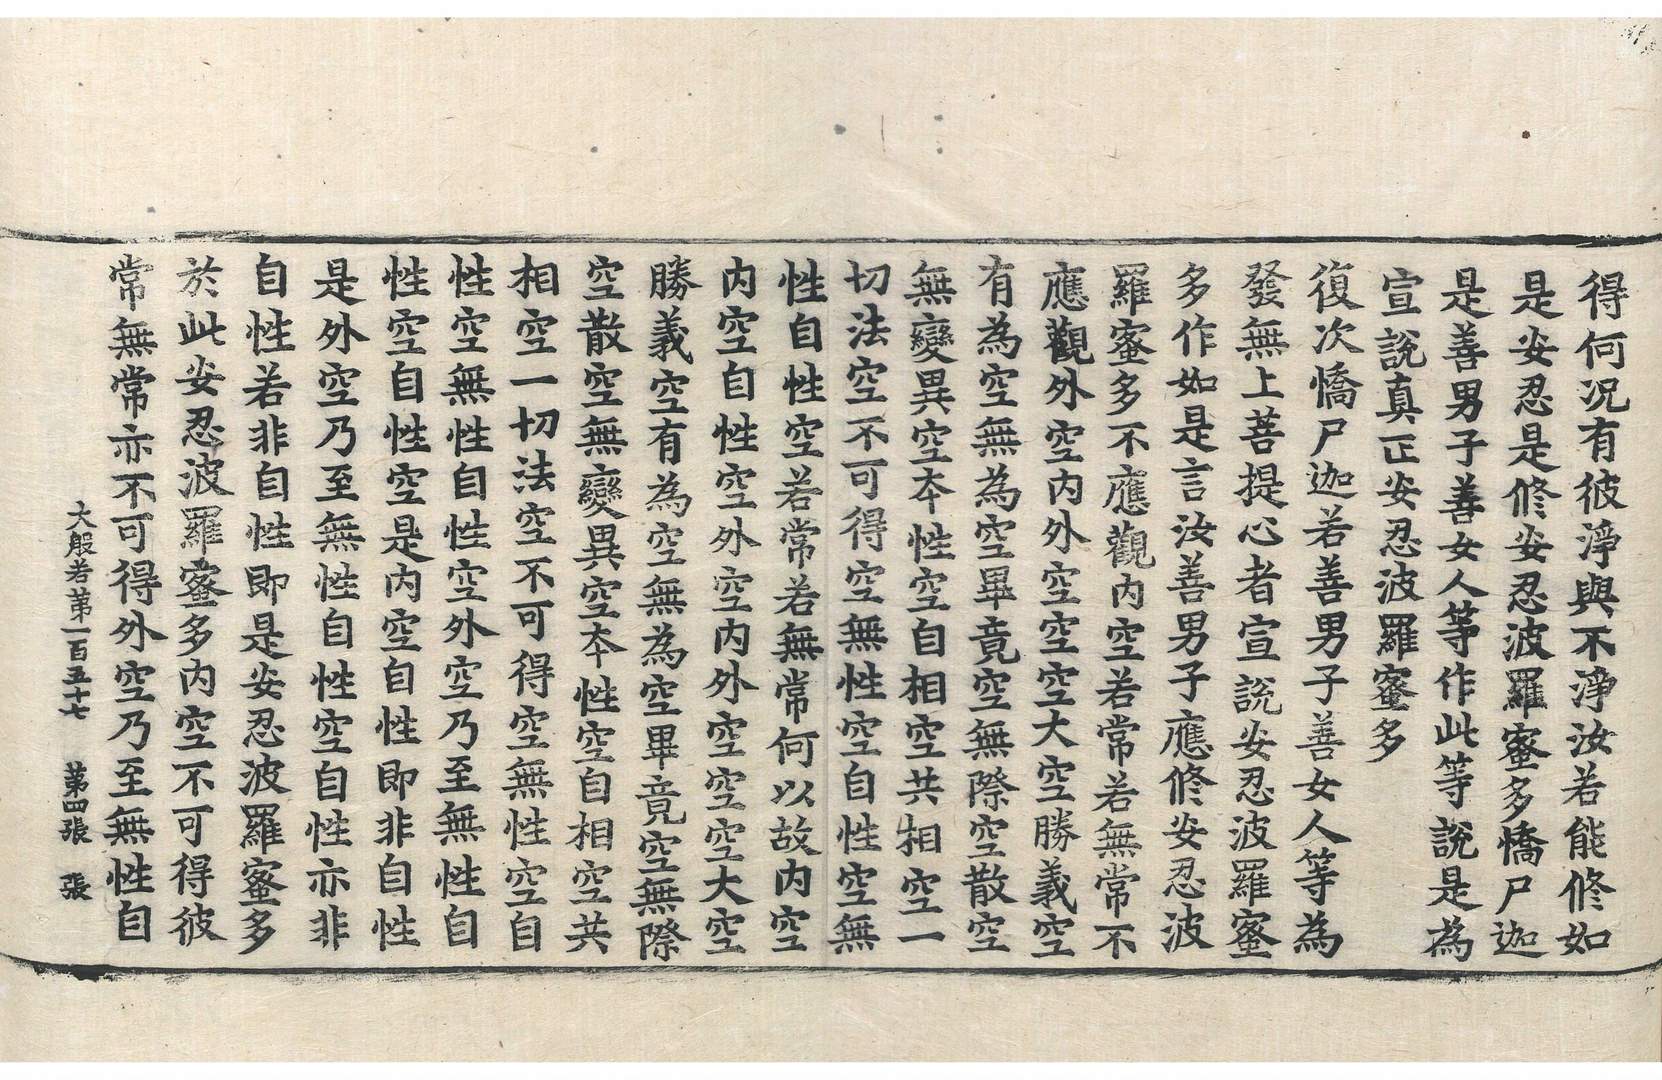 得何况有彼淨與不淨汝若能修如
是安忍是修安忍波羅蜜多憍尸迦
是善男子善女人等作此等說是為
宣說真正安忍波羅蜜多
復次憍尸迦若善男子善女人等為
發無上菩提心者宣說安忍波羅蜜
多作如是言汝善男子應修安忍波
羅蜜多不應觀内空若常若無常不
應觀外空内外空空空大空勝義空
有為空無為空畢竟空無際空散空
無變異空本性空自相空共相空一
切法空不可得空無性空自性空無
性自性空若常若無常何以故内空
内空自性空外空内外空空空大空
勝義空有為空無為空畢竟空無際
空散空無變異空本性空自相空共
相空一切法空不可得空無性空自
性空無性自性空外空乃至無性自
性空自性空是内空自性即非自性
是外空乃至無性自性空自性亦非
自性若非自性即是安忍波羅蜜多
於此安忍波羅蜜多内空不可得彼
常無常亦不可得外空乃至無性自
大般若第一百五十七 第四張 張